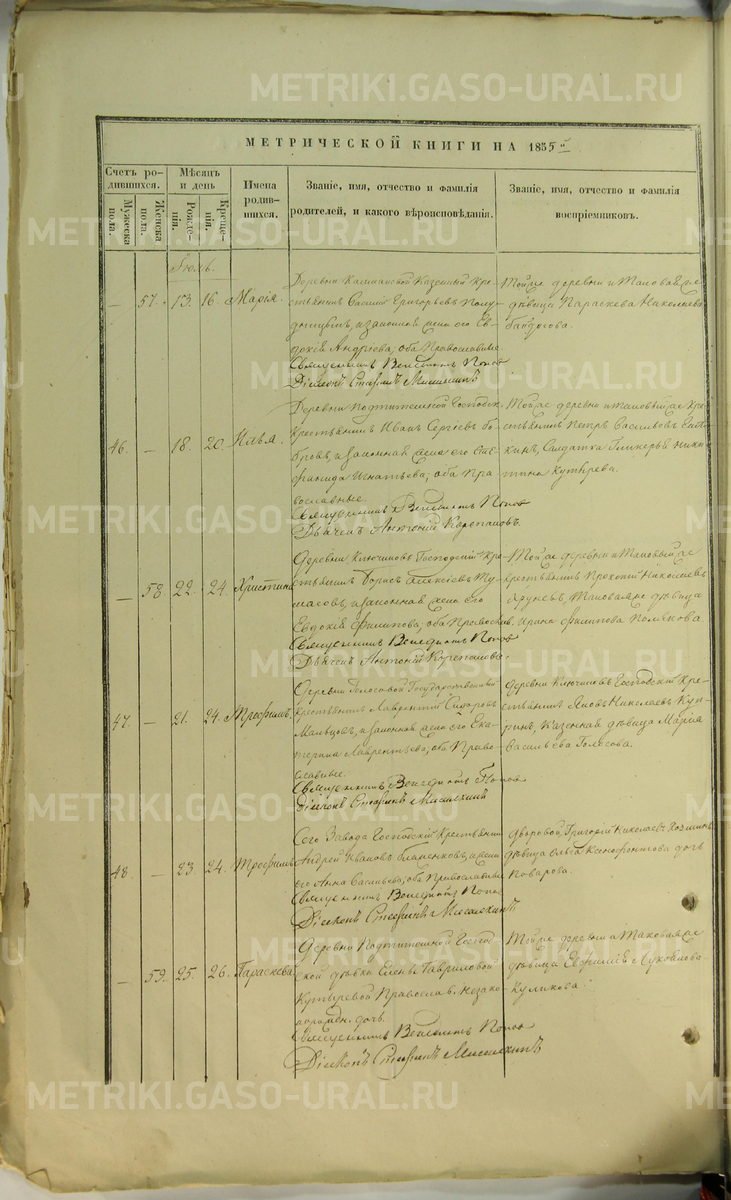 МЕТРИЧЕСКОЙ КНИГИ НА 1855 й
Счетъ родившихся.
Мужеска пола.
Женска пола.
Мѣсяцъ и день
Рожденія.
Крещенія.
Имена родившихся.
Званіе, имя, отчество и фамилія
родителей, и какого вѣроисповѣданія.
Званіе, имя, отчество и фамилія
воспріемниковъ.
Іюль.
— 57. 13. 16. Марія.
Деревни Казенный Кре-
стьянинъ Василій Григорьевъ
и законная жена его Ев-
докія Андреева, оба Православные
Священникъ Венедиктъ Поповъ
Діаконъ Стефанъ
Той же деревни и таковая же
дѣвица Параскева Николаева
46. — 18. 20. Илья.
Деревни Господск.
Крестьянинъ Иванъ Сергѣевъ Бо-
бровъ, и законная жена его Сте-
фанида Игнатьева, оба Пра-
вославные.
Священникъ Венедиктъ Поповъ
Дьячекъ Антоній Корепановъ.
Той же деревни и таковый же кре-
стьянинъ Петръ Васильевъ
Солдатка Гликерья Ники-
тина Кутырева.
— 58. 22. 24. Христина
Деревни Ключиковъ Господскій Кре-
стьянинъ Борисъ Алексѣевъ
и законная жена его
Евдокія Филипова, оба Православ.
Священникъ Венедиктъ Поповъ
Дьячекъ Антоній Корепановъ.
Той же деревни и таковый же
крестьянинъ Прокопій Николаевъ
таковая же дѣвица
Ирина Филипова Полякова
47. — 21. 24. Трофимъ.
Деревни Голосовой Государственный
крестьянинъ Лаврентій Сидоровъ
Мальцовъ, и законная жена его Ека-
терина Лаврентьева, оба Право-
славные.
Священникъ Венедиктъ Поповъ
Діаконъ Стефанъ
Деревни Ключиковъ Господскій Кре-
стьянинъ Яковъ Николаевъ Куп-
ринъ, Казенная дѣвица Марія
Васильева Голосова.
48. — 23. 24. Трофимъ
Сего Завода Господскій Крестьянинъ
Андрей Ивановъ и жена
его Анна Васильева, оба Православные
Священникъ Венедиктъ Поповъ
Діаконъ Стефанъ
Дворовой Григорій Николаевъ
дѣвица Ольга Ксенофонтова дочь
Поварова.
— 59. 25. 26. Параскева
Деревни Господ-
ской дѣвки Елены Гавриловой
Кутыревой Православ. незако-
норожден. дочь.
Священникъ Венедиктъ Поповъ
Діаконъ Стефанъ
Той же деревни и таковая же
дѣвица Евфимія
Куликова.
METRIKI.GASO-URAL.RU